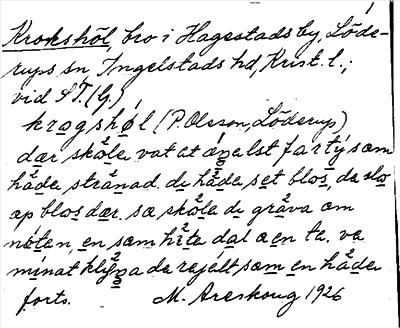 Krokshöl, bro i Hagestads by, Löde-
rups sn, Ingelstads hd, Krist. l.;
vid ST. (G.)
krogshøl (P. Olsson, Löderup)
dær skøle vat at ánalst fartýsom
håde strånad. de håde set blos, da slo
op blos dær. so skøle de gråva om
nóten, en som hita dal o en ta. va
minat klýna da rejélt som en håde
forts. M. Areskoug 1926